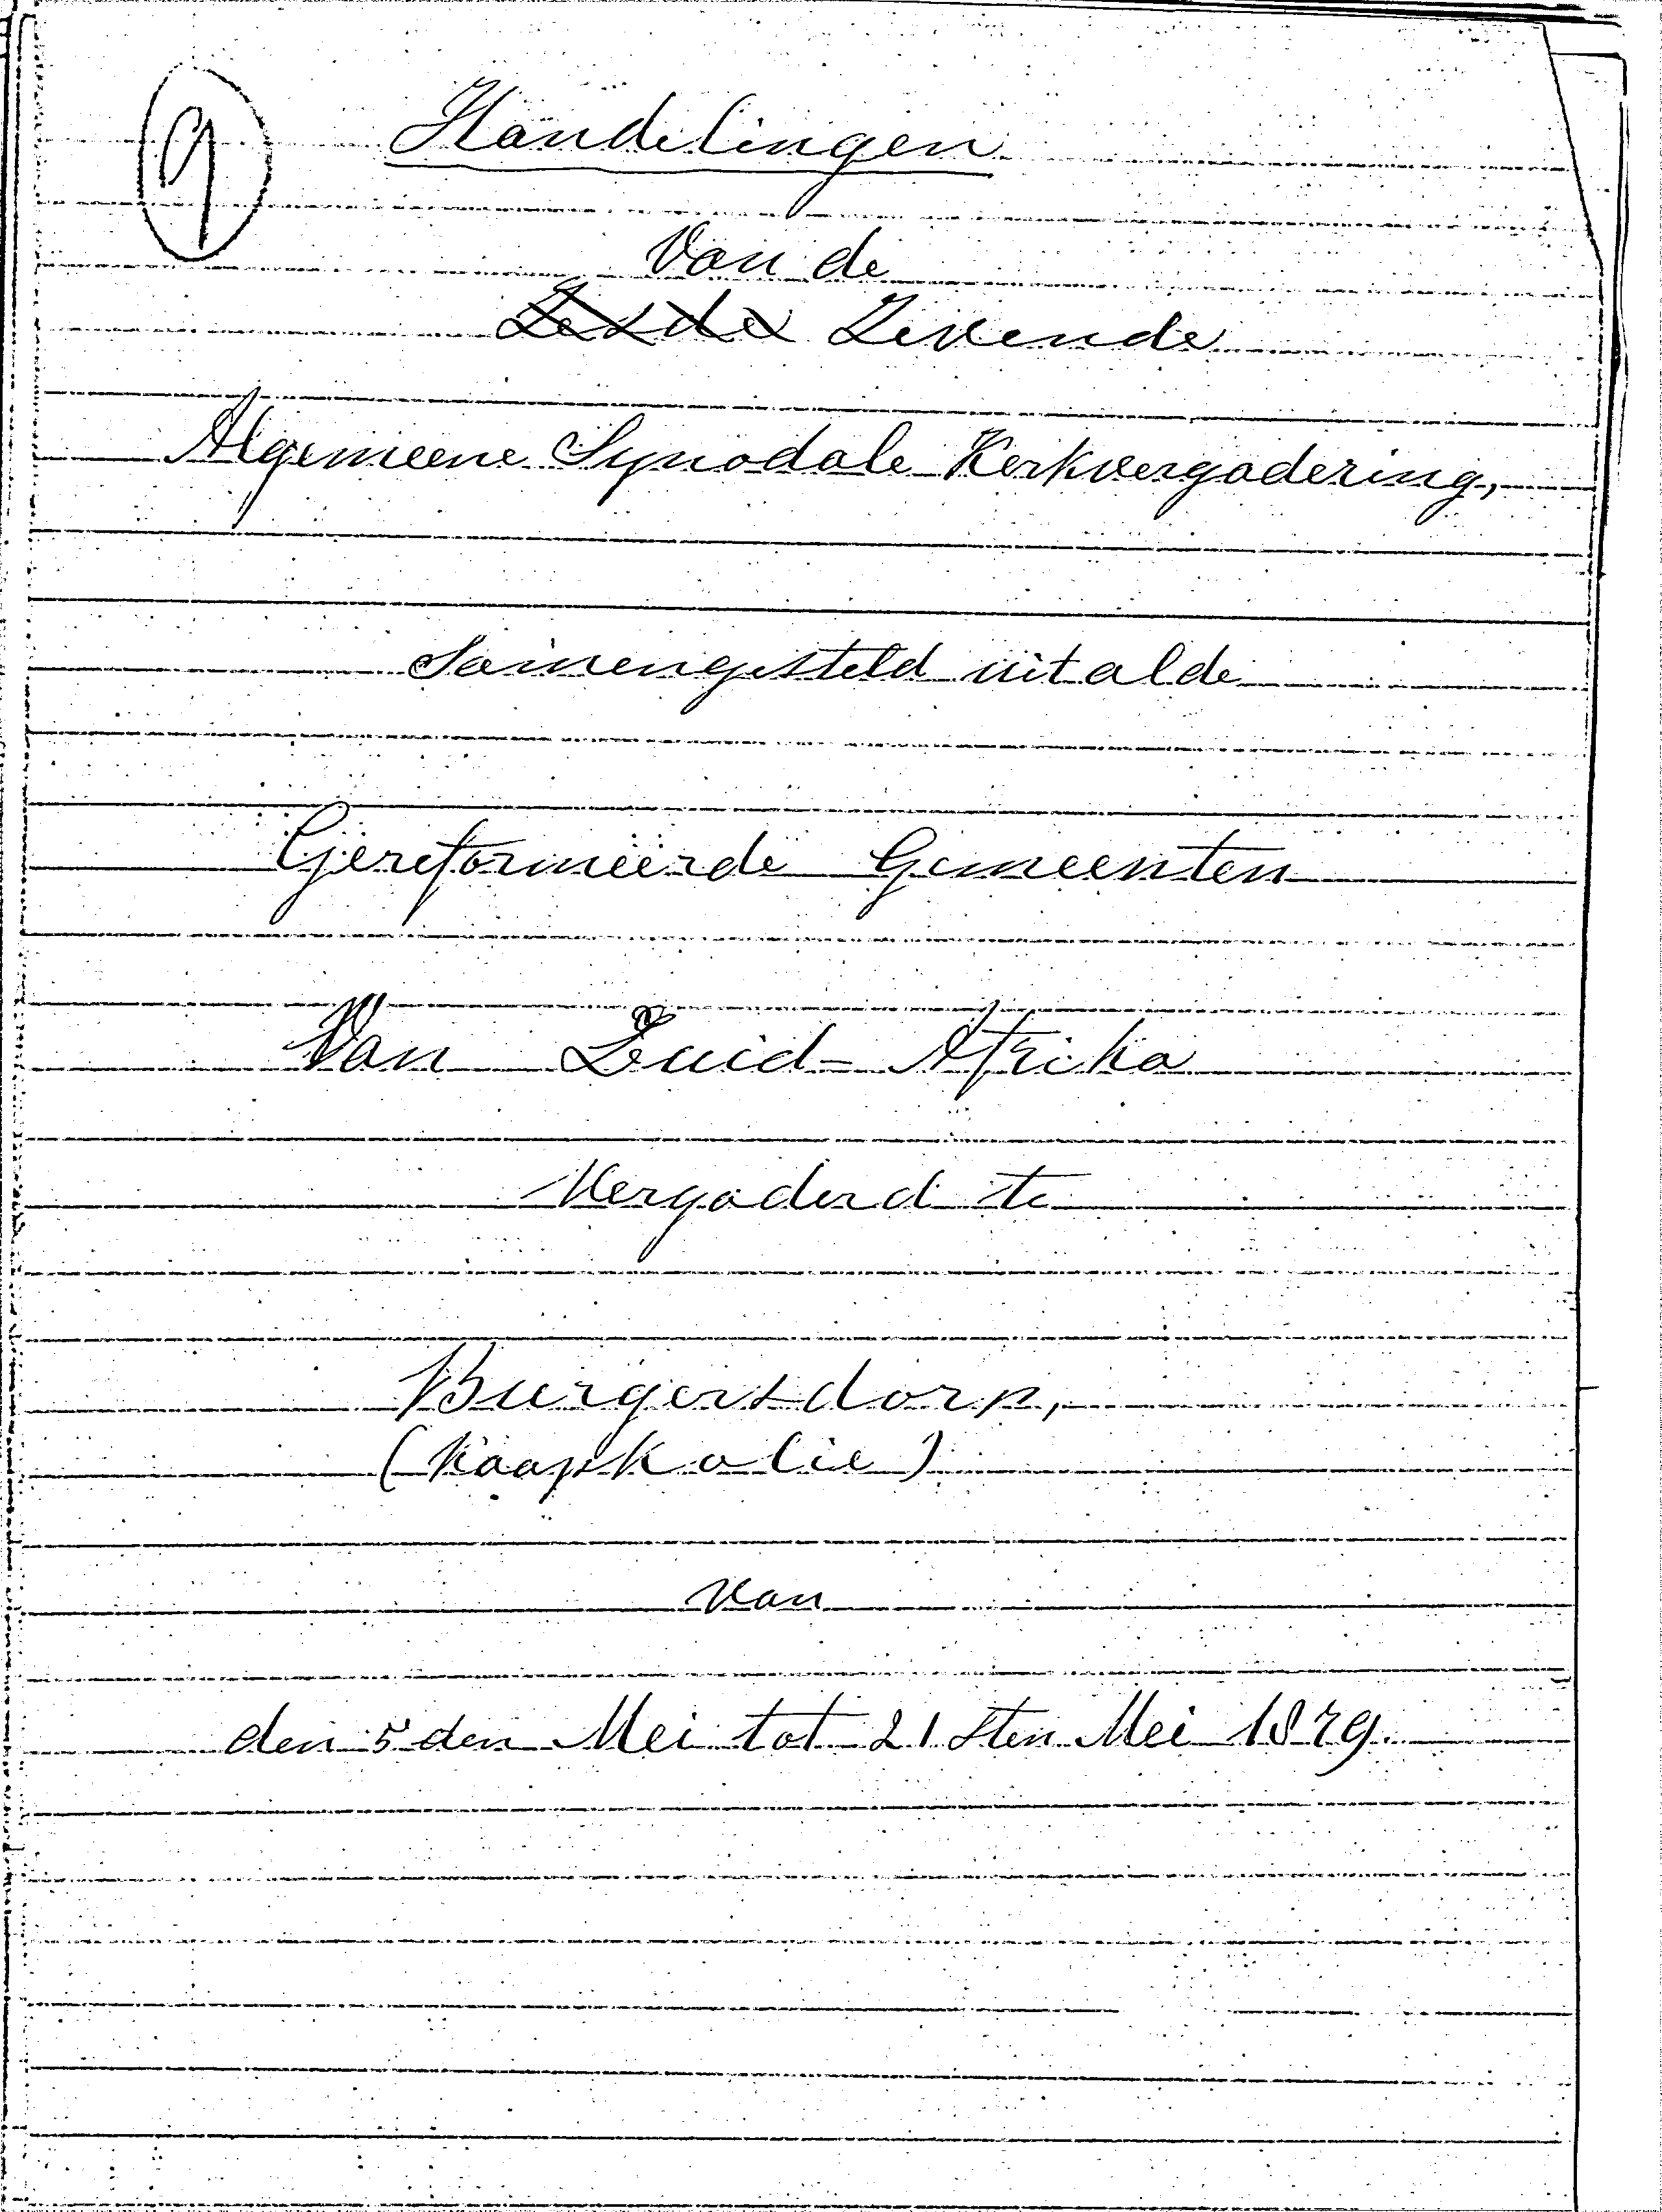 9
Handelingen
Van de
Zesde Zevende
Algemeene Synodale Kerkvergadering,
Samengesteld uit al de
Gereformeerde Gemeenten
Van Zuid-Afrika
Vergaderd te
Burgersdorp,
(KaapKolie)
van
den 5 den Mei tot 21 sten Mei 1879.